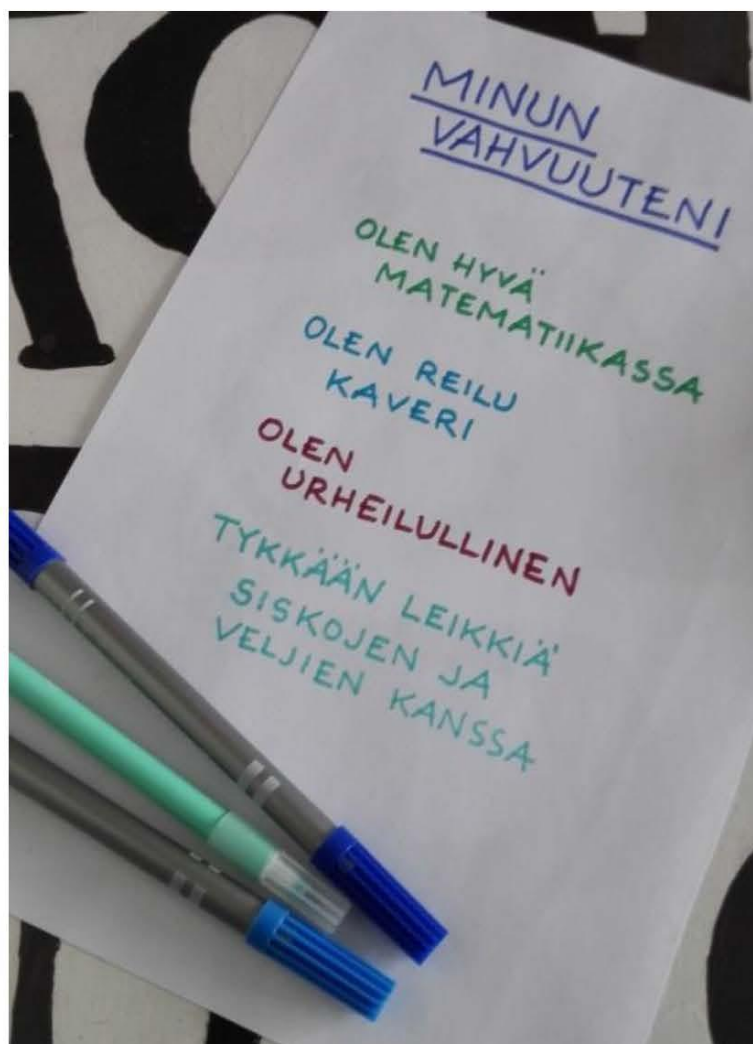 MINUN
VAHVUUTENI
OLEN HYVÄ
MATEMATIIKASSA
OLEN REILU
KAVERI
OLEN
URHEILULLINEN
TYKKÄÄN LEIKKIÄ
SISKOJEN JA
VELJIEN KANSSA